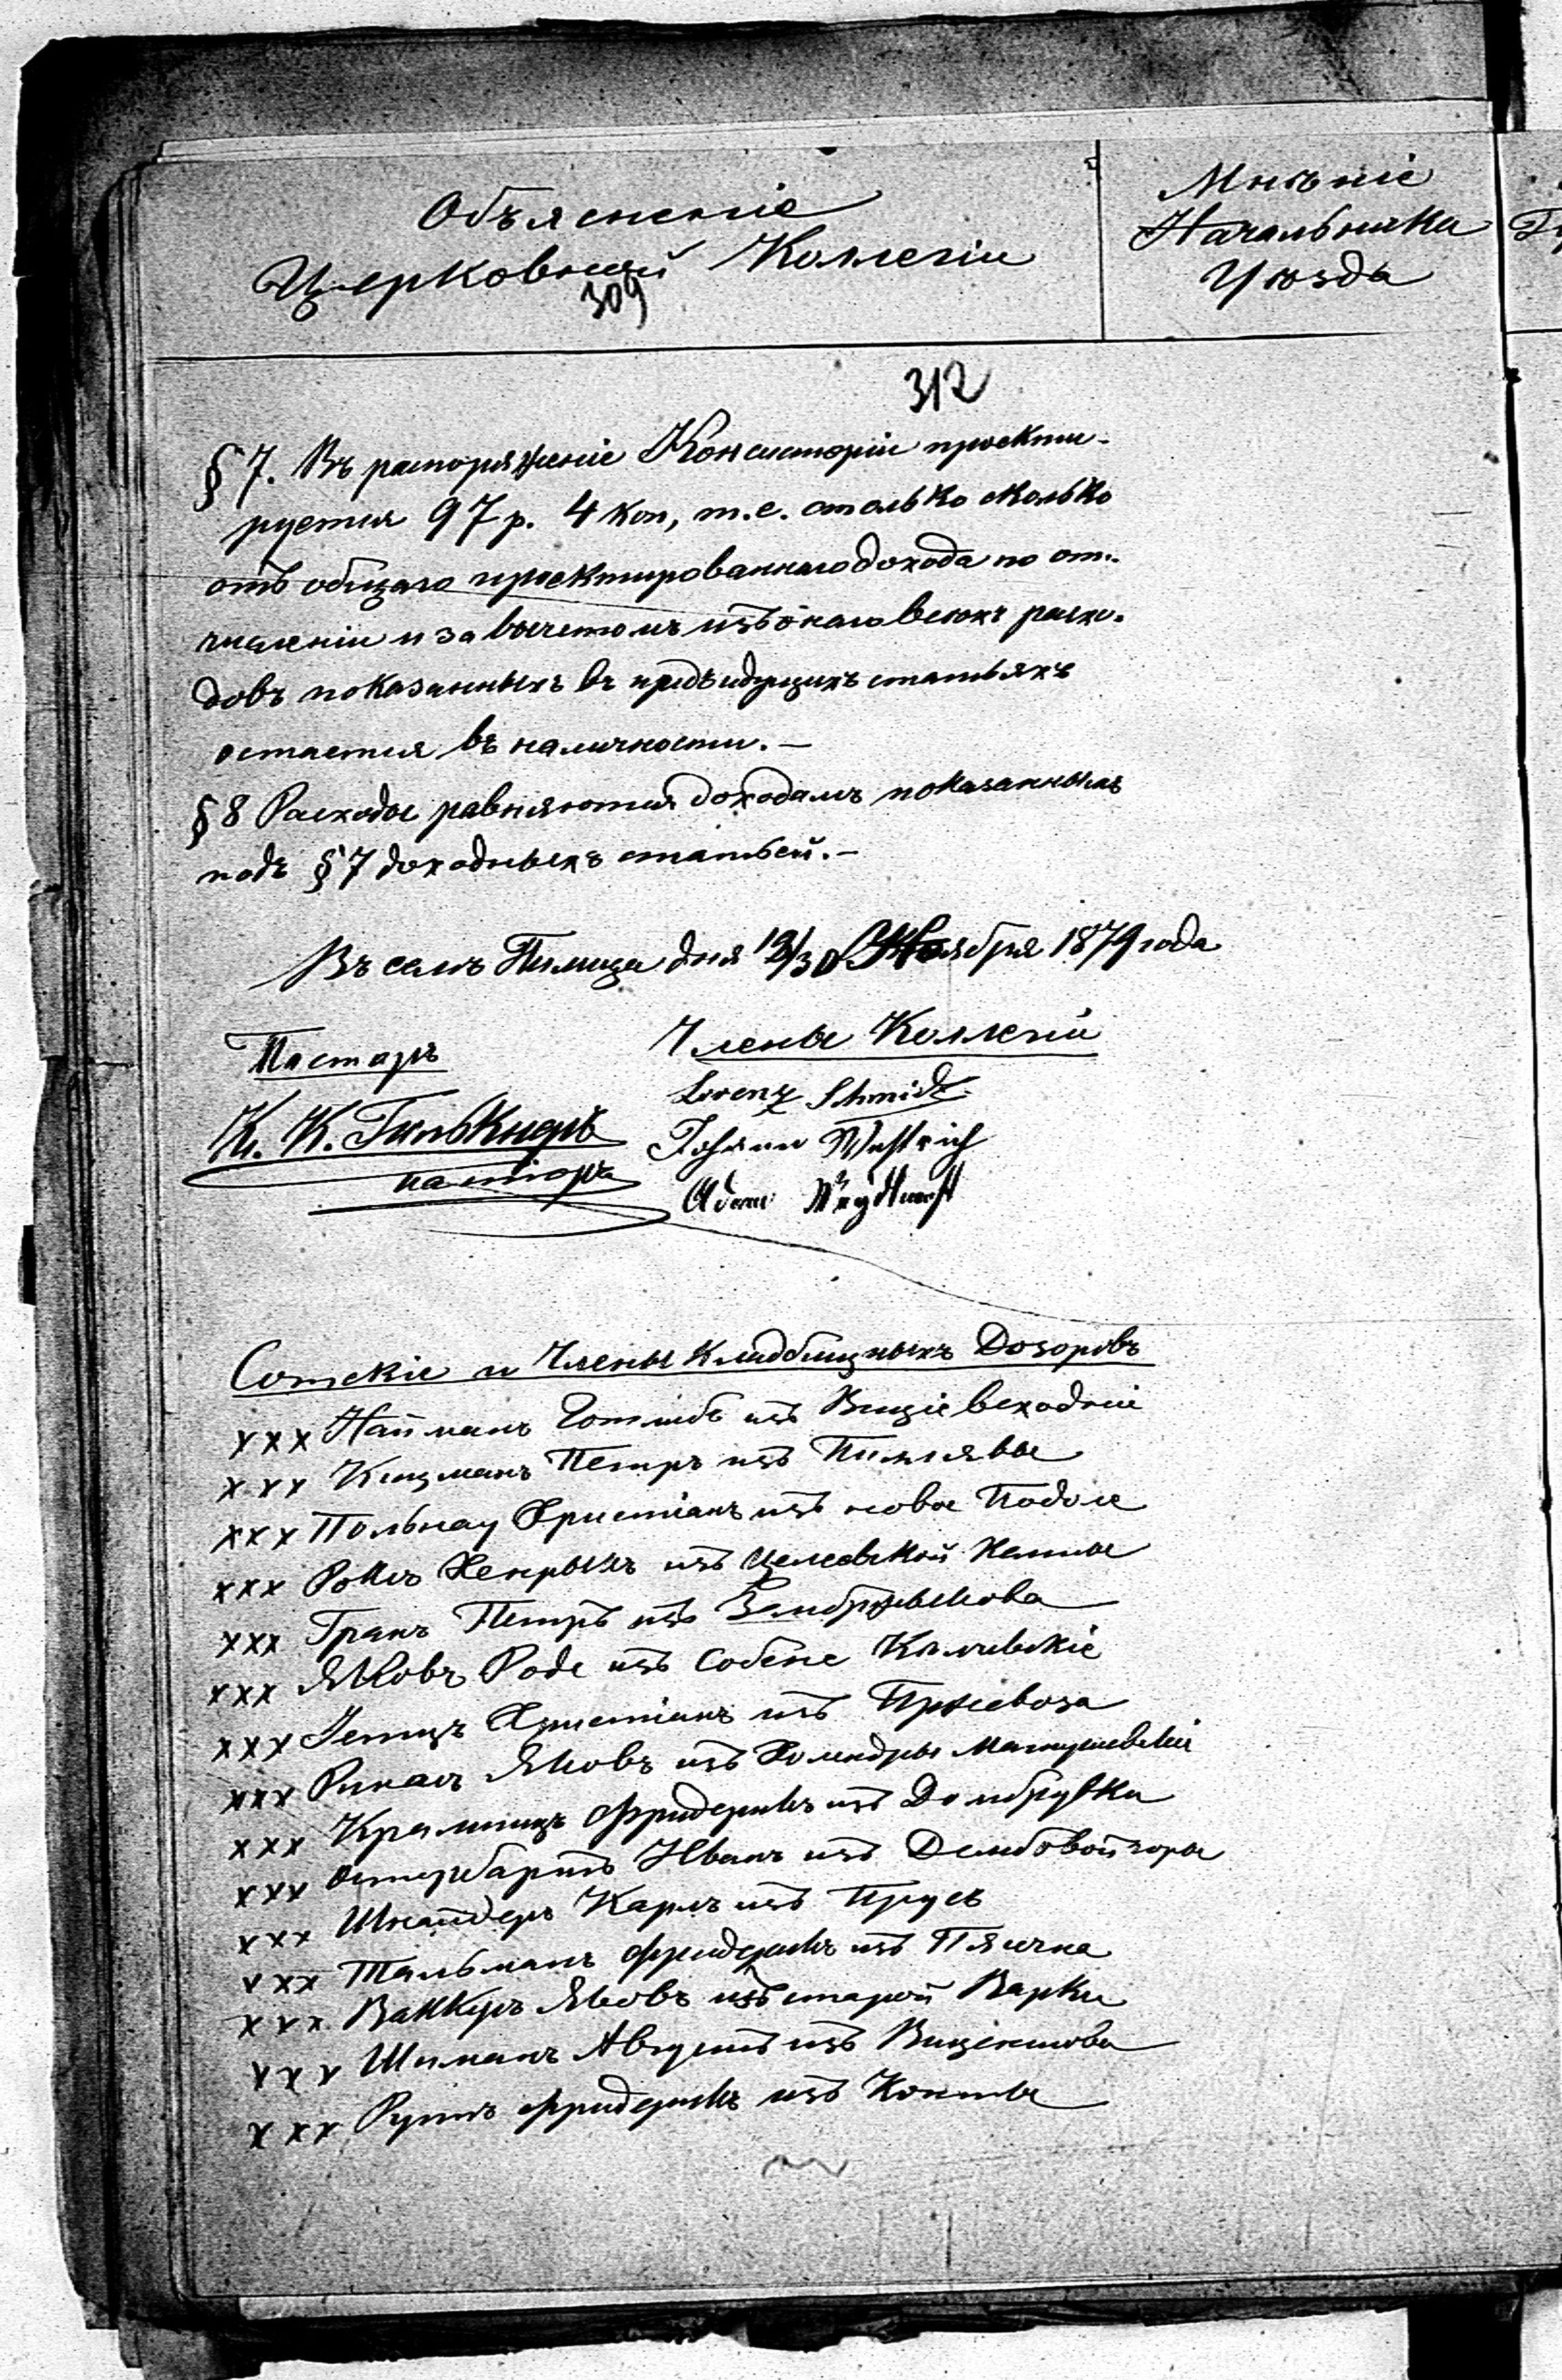 Объясненіе
Церковной Коллегіи
309
Мнѣніе
Начальника
Уѣзда
312
§ 7. Въ распоряженіе Консисторіи проекти-
руется 97 р. 4 коп, т.е. столько сколько
отъ общаго проектированнаго дохода по от-
численіи и за вычетомъ изъ онаго всѣхъ расхо-
довъ показанныхъ въ предъидущихъ статьяхъ
остается въ наличности. —
§ 8 Расходы равняются доходамъ показаннымъ
подъ § 7 доходныхъ статьей. —
Въ селѣ Пилица дня Ноября 1879 года
Пасторъ
Члены Коллегіи
К. К. Гилькнеръ
пасторъ
Lorenz Schmidt
Johann Wustrich
Adam
Сотскіе и Члены Кладбищныхъ Дозоровъ
xxx Найманъ Готлибъ изъ всходніе
xxx Кицманъ Петръ изъ Пилявы
xxx Польнау Христіанъ изъ новое Подоле
xxx Рокъ Хенрыкъ изъ Целеевской Кемпы
xxx Гранъ Петръ изъ Замбржыкова
xxx Яковъ Роде изъ Собене Киличскіе
xxx Христіанъ изъ Пржевоза
xxx Яковъ изъ Холендры Магнушевскіе
xxx Фридерикъ изъ Домбрувки
xxx Иванъ изъ Дембовой горы
xxx Шнайдеръ Карлъ изъ Прусъ
xxx Тальманъ Фридерикъ изъ Пясечна
xxx Ваккеръ Яковъ изъ старой Варки
xxx Шиманъ Августъ изъ
xxx Рутъ Фридерикъ изъ Конты